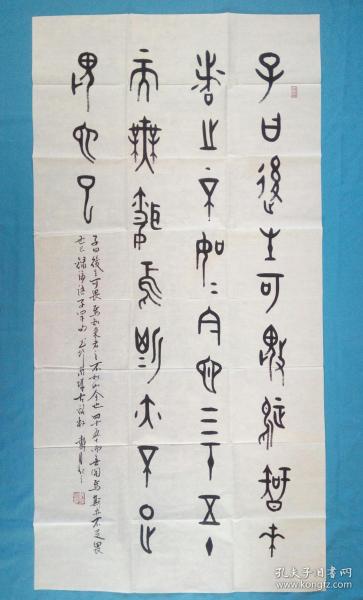 子曰後生可畏焉知來
者之不如今也四十五十
而無聞焉斯亦不足
畏也已
子曰後生可畏焉知來者之不如今也四十五十而無聞焉斯亦不足畏
也已 錄論語子罕句
孔夫子旧书网
www.kongfz.com